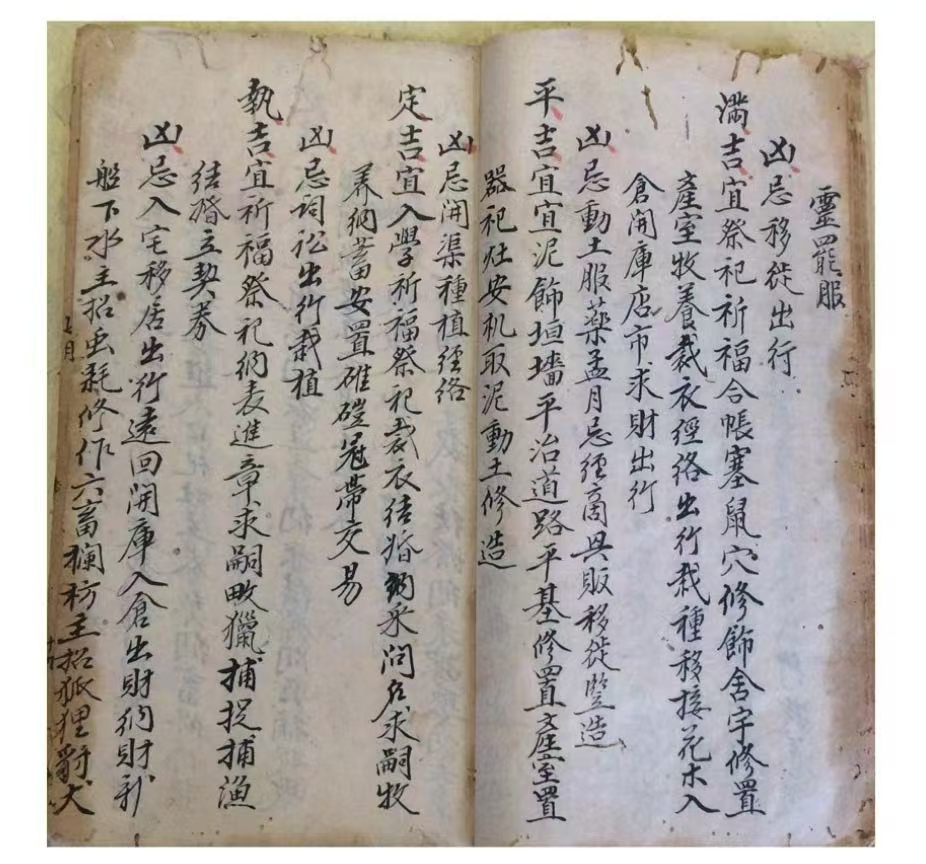 靈罷服
凶忌移徙出行
滿吉宜祭祀祈福合帳塞鼠穴修飾舍宇修置
產室牧養裁衣經絡出行栽種移接花木入
倉開庫店市求財出行
凶忌動土服藥孟月忌經商興販移徙豎造
平吉宜宜泥飾垣墻平治道路平基修置產室置
器祀灶安机取泥動土修造
凶忌開渠種植經絡
定吉宜入學祈福祭祀裁衣结婚納采問名求嗣牧
养納畜安置碓磑冠帶交易
凶忌詞訟出行栽植
執吉宜祈福祭祀納表進章求嗣畋獵捕捉捕漁
结婚立契券
凶忌入宅移居出行遠回開庫入倉出財納財新
船下水主招虫耗修作六畜欄枋主招狐狸豺犬
七月